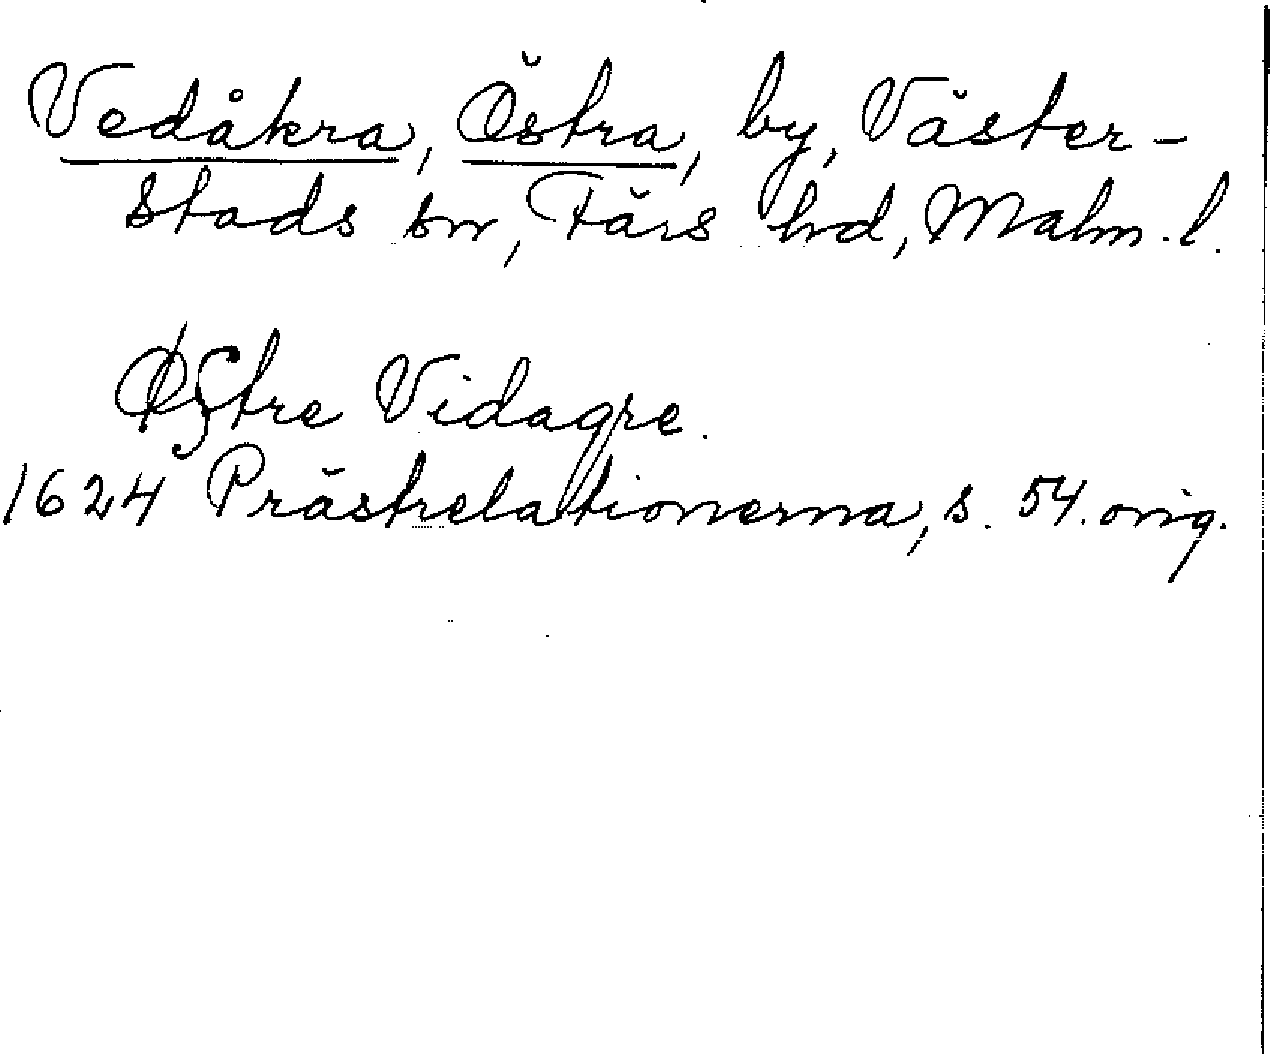 Vedåkra, Östra, by, Väster-
stads sn, Färs hd, Malm. l.
Østre Vidagre.
1624 Prästrelationerna, s. 54. orig.